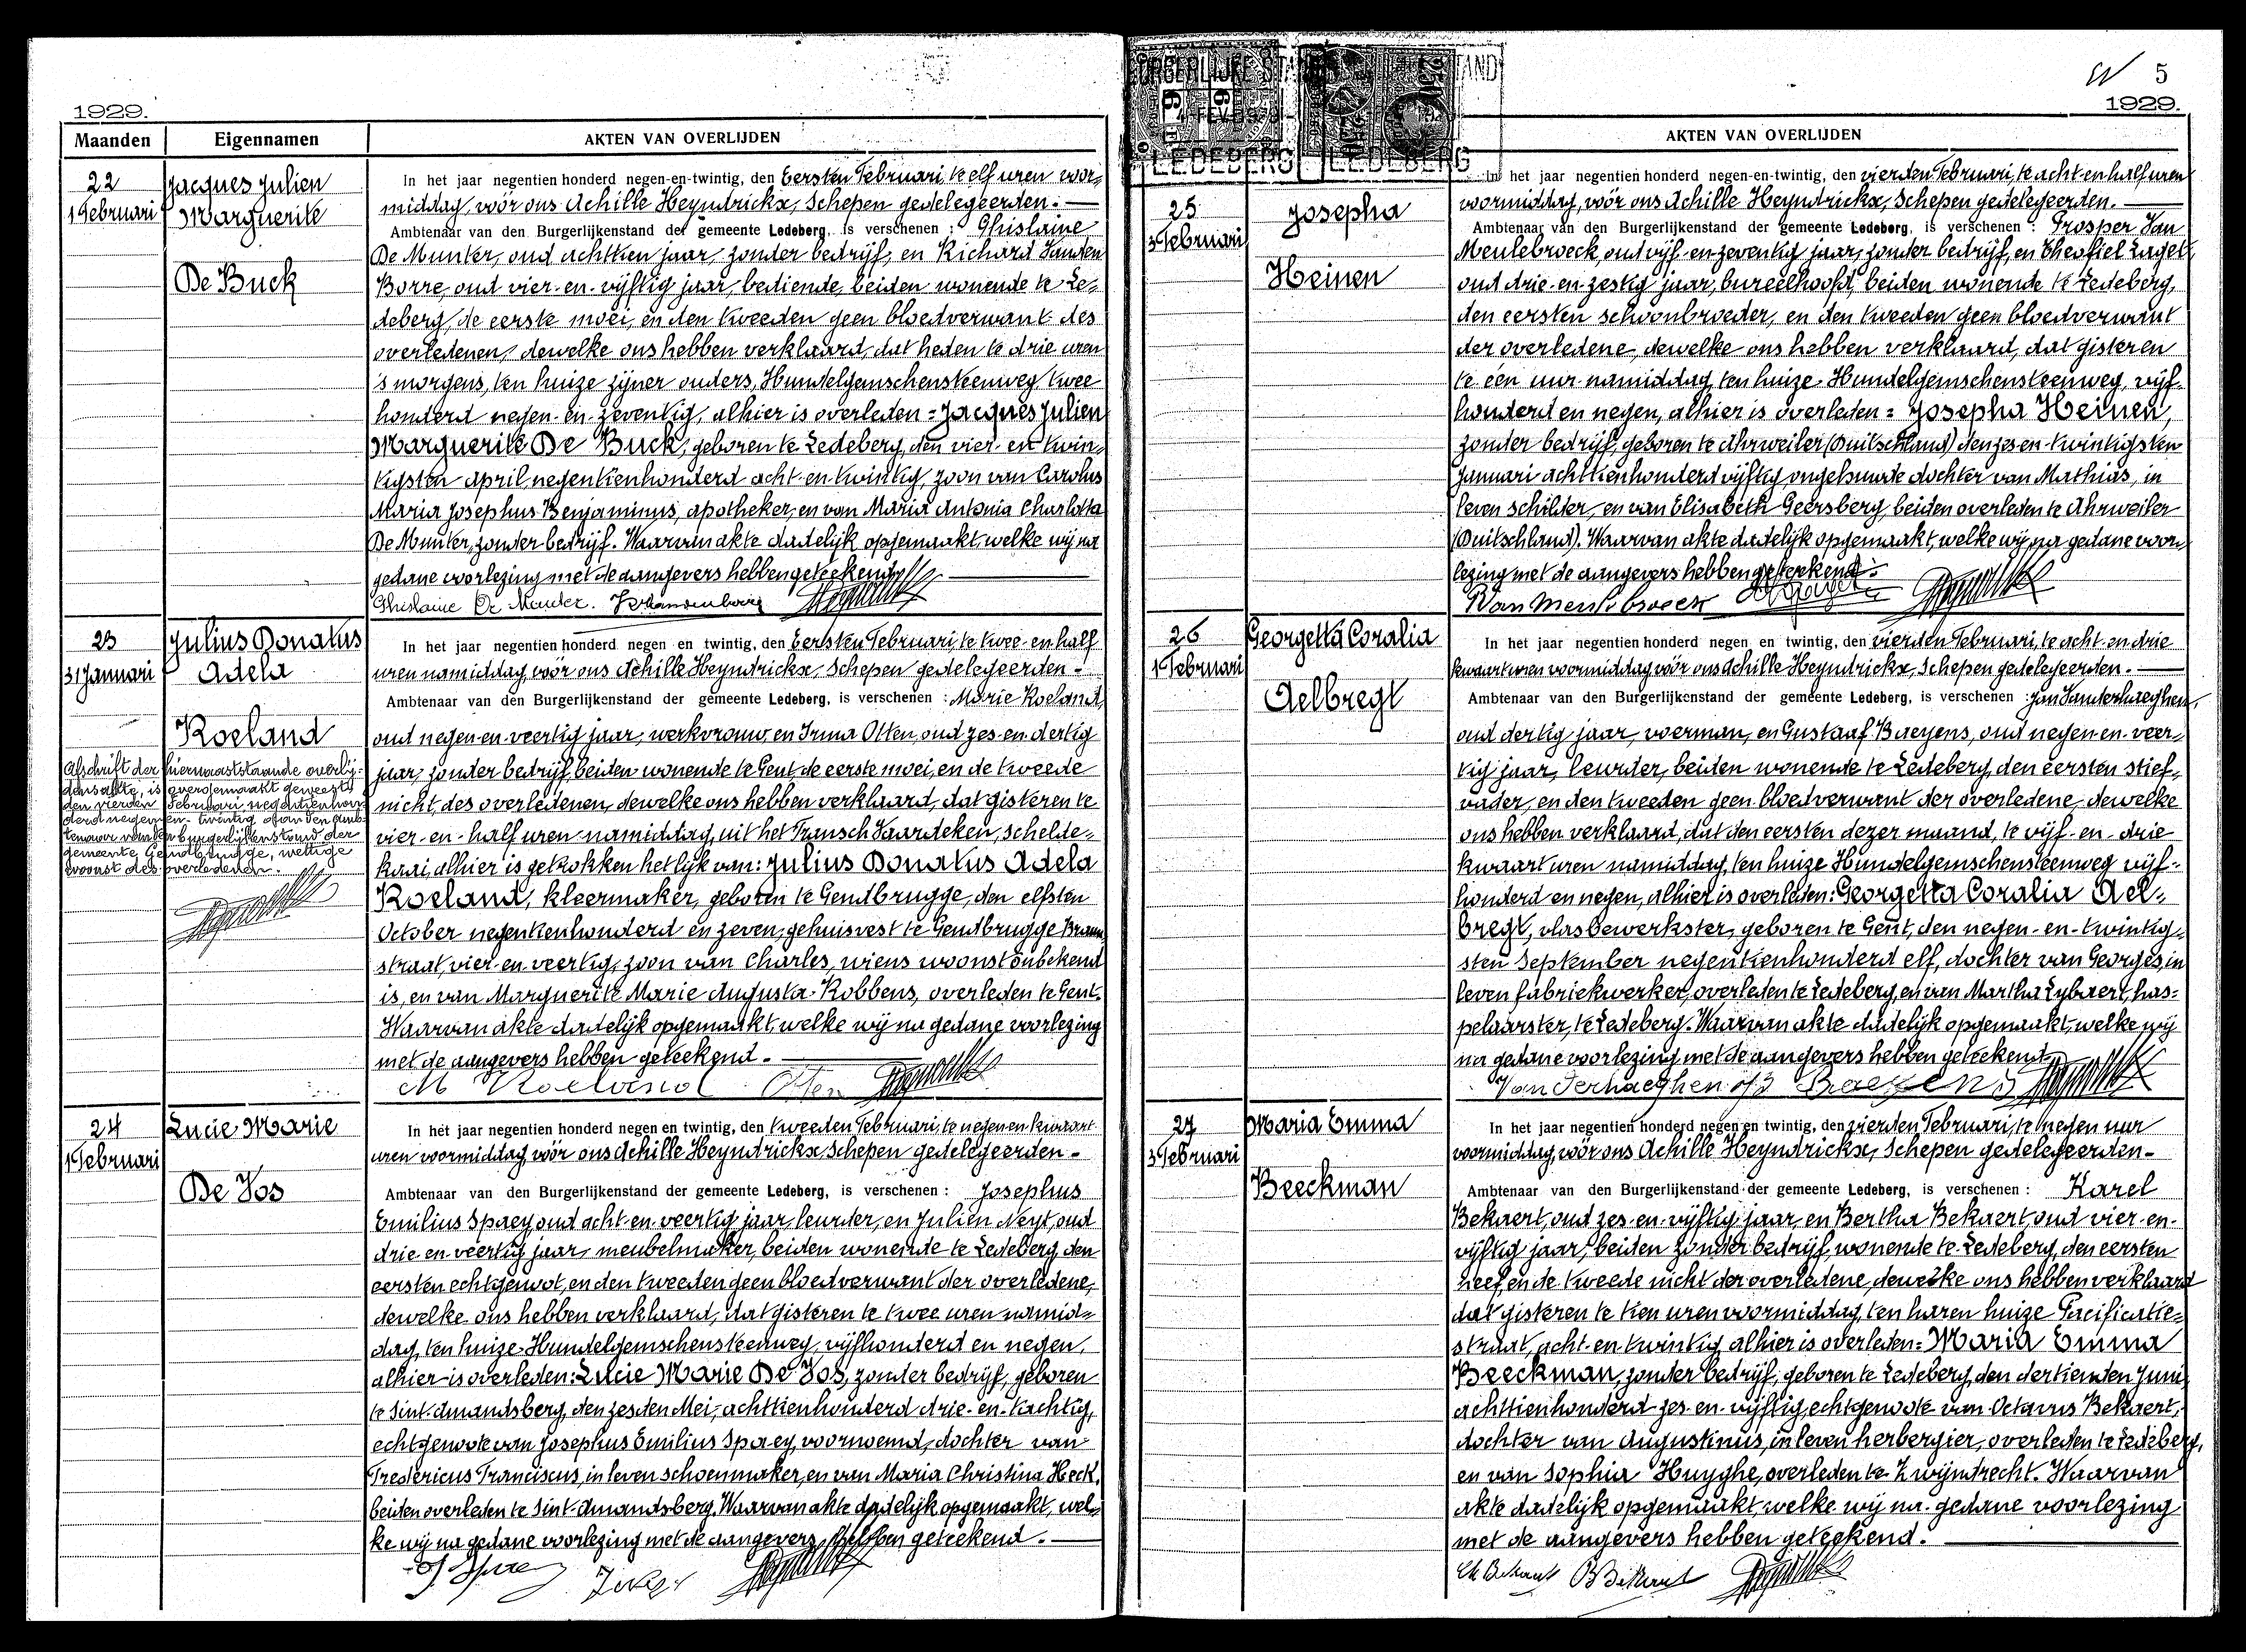 1929.
Maanden Eigennamen AKTEN VAN OVERLIJDEN
22
1 Februari
Jacques Julien
Marguerite
De Buck
In het jaar negentien honderd negen-en-twintig, den Eersten Februari, te elf uren voor-
middag, vóór ons Achille Heyndrickx, Schepen gedelegeerden. —
Ambtenaar van den Burgerlijkenstand der gemeente Ledeberg, is verschenen : Ghislaine
De Munter, oud achttien jaar, zonder bedrijf, en Richard Vanden
Borre, oud vier-en-vijftig jaar, bediende, beiden wonende te Le-
deberg, de eerste moei, en den tweeden geen bloedverwant des
overledenen, dewelke ons hebben verklaard, dat heden te drie uren
's morgens, ten huize zijner ouders, Hundelgemschensteenweg, twee
honderd negen-en-zeventig, alhier is overleden = Jacques Julien
Marguerite De Buck, geboren te Ledeberg, den vier-en-twin-
tigsten april negentienhonderd acht-en-twintig, zoon van Carolus
Maria Josephus Benjaminus, apotheker, en van Maria Antonia Charlotta
De Munter, zonder bedrijf. Waarvan akte dadelijk opgemaakt, welke wij na
gedane voorlezing met de aangevers hebben geteekend. —
Ghislaine De Munter. R Vandenborre
23
31 Januari
Julius Donatus
Adela
Roeland
Afschrift der hiernaaststaande overlij-
densakte, is overgemaakt geweest
den vierden Februari negentienhon-
derd negen-en-twintig aan den amb-
tenaar van den burgerlijkenstand der
gemeente Gendbrugge, wettige
woonst des overledenen.
In het jaar negentien honderd negen en twintig, den Eersten Februari, te twee-en-half
uren namiddag, vóór ons Achille Heyndrickx, Schepen gedelegeerden -
Ambtenaar van den Burgerlijkenstand der gemeente Ledeberg, is verschenen : Marie Roeland,
oud negen-en-veertig jaar, werkvrouw, en Irma Otten, oud zes-en-dertig
jaar, zonder bedrijf, beiden wonende te Gent, de eerste moei, en de tweede
nicht, des overledenen, dewelke ons hebben verklaard, dat gisteren te
vier-en-half uren namiddag, uit het Fransch Vaardeken, Schelde-
kaai, alhier is getrokken het lijk van: Julius Donatus Adela
Roeland, kleermaker, geboren te Gendbrugge, den elfsten
October negentienhonderd en zeven, gehuisvest te Gendbrugge
straat, vier-en-veertig, zoon van Charles, wiens woonst onbekend
is, en van Marguerite Marie Augusta Robbens, overleden te Gent.
Waarvan akte dadelijk opgemaakt, welke wij na gedane voorlezing
met de aangevers hebben geteekend. —
M Roeland Otten
24
1 Februari
Lucie Marie
De Vos
In het jaar negentien honderd negen en twintig, den tweeden Februari, te negen en kwaart
uren voormiddag, vóór ons Achille Heyndrickx, Schepen gedelegeerden -
Ambtenaar van den Burgerlijkenstand der gemeente Ledeberg, is verschenen : Josephus
Emilius Spaey, oud acht-en-veertig jaar, leurder, en Julien Neyt, oud
drie en veertig jaar, meubelmaker, beiden wonende te Ledeberg, den
eersten echtgenoot, en den tweeden geen bloedverwant der overledene,
dewelke ons hebben verklaard, dat gisteren te twee uren namid-
dag, ten huize Hundelgemschensteenweg, vijfhonderd en negen,
alhier is overleden: Lucie Marie De Vos, zonder bedrijf, geboren
te Sint-Amandsberg, den zesden Mei, achttienhonderd drie-en-tachtig,
echtgenoote van Josephus Emilius Spaey, voornoemd, dochter van
Fredericus Franciscus, in leven schoenmaker, en van Maria Christina Heck,
beiden overleden te Sint-Amandsberg. Waarvan akte dadelijk opgemaakt, wel-
ke wij na gedane voorlezing met de aangevers hebben geteekend. —
J. Spaey
BURGERLIJKE STAND
LEDEBERG
LEDEBERG
5
1929.
AKTEN VAN OVERLIJDEN
25
3 Februari
Josepha
Heinen
In het jaar negentien honderd negen-en-twintig, den vierden Februari, te acht en half uren
voormiddag, vóór ons Achille Heyndrickx, Schepen gedelegeerden. —
Ambtenaar van den Burgerlijkenstand der gemeente Ledeberg, is verschenen : Prosper Van
Meulebroeck, oud vijf-en-zeventig jaar, zonder bedrijf, en Theofiel
oud drie-en-zestig jaar, bureelhoofd, beiden wonende te Ledeberg,
den eersten schoonbroeder, en den tweeden geen bloedverwant
der overledene, dewelke ons hebben verklaard, dat gisteren
te één uur namiddag, ten huize Hundelgemschensteenweg, vijf-
honderd en negen, alhier is overleden = Josepha Heinen,
zonder bedrijf, geboren te Ahrweiler (Duitschland) den zes en-twintigsten
Januari achttienhonderd vijftig, ongehuwde dochter van Mathias, in
leven schilder, en van Elisabeth Geersberg, beiden overleden te Ahrweiler
(Duitschland). Waarvan akte dadelijk opgemaakt, welke wij na gedane voor-
lezing met de aangevers hebben geteekend. -
P. Van Meulebroeck
26
1 Februari
Georgetta Coralia
Aelbregt
In het jaar negentien honderd negen en twintig, den vierden Februari, te acht-en-drie
kwaart uren voormiddag, vóór ons Achille Heyndrickx, Schepen gedelegeerden. —
Ambtenaar van den Burgerlijkenstand der gemeente Ledeberg, is verschenen : Jan Vanderhaeghen,
oud dertig jaar, voerman, en Gustaaf Baeyens, oud negen-en-veer-
tig jaar, leurder, beiden wonende te Ledeberg, den eersten stief-
vader, en den tweeden geen bloedverwant der overledene, dewelke
ons hebben verklaard, dat den eersten dezer maand, te vijf-en-drie
kwaart uren namiddag, ten huize Hundelgemschensteenweg vijf-
honderd en negen, alhier is overleden: Georgetta Coralia Ael-
bregt, vlasbewerkster, geboren te Gent, den negen-en-twintig-
sten September negentienhonderd elf, dochter van Georges, in
leven fabriekwerker, overleden te Ledeberg, en van Martha Lybaert, has-
pelaarster, te Ledeberg. Waarvan akte dadelijk opgemaakt, welke wij
na gedane voorlezing met de aangevers hebben geteekend.
Vanderhaeghen Baeyens
27
3 Februari
Maria Emma
Beeckman
In het jaar negentien honderd negen en twintig, den vierden Februari, te negen uur
voormiddag, vóór ons Achille Heyndrickx, Schepen gedelegeerden -
Ambtenaar van den Burgerlijkenstand der gemeente Ledeberg, is verschenen : Karel
Bekaert, oud zes-en-vijftig jaar en Bertha Bekaert, oud vier-en-
vijftig jaar, beiden zonder bedrijf, wonende te Ledeberg, den eersten
neef, en de tweede nicht der overledene, dewelke ons hebben verklaard
dat gisteren te tien uren voormiddag, ten haren huize Pacificatie-
straat, acht-en-twintig, alhier is overleden = Maria Emma
Beeckman, zonder bedrijf, geboren te Ledeberg, den dertienden Juni
achttienhonderd zes-en-vijftig, echtgenoote van Octavus Bekaert,
dochter van Augustinus, in leven herbergier, overleden te Ledeberg,
en van Sophia Huyghe, overleden te Zwijndrecht. Waarvan
akte dadelijk opgemaakt, welke wij na gedane voorlezing
met de aangevers hebben geteekend. —
Ch Bekaert B Bekaert